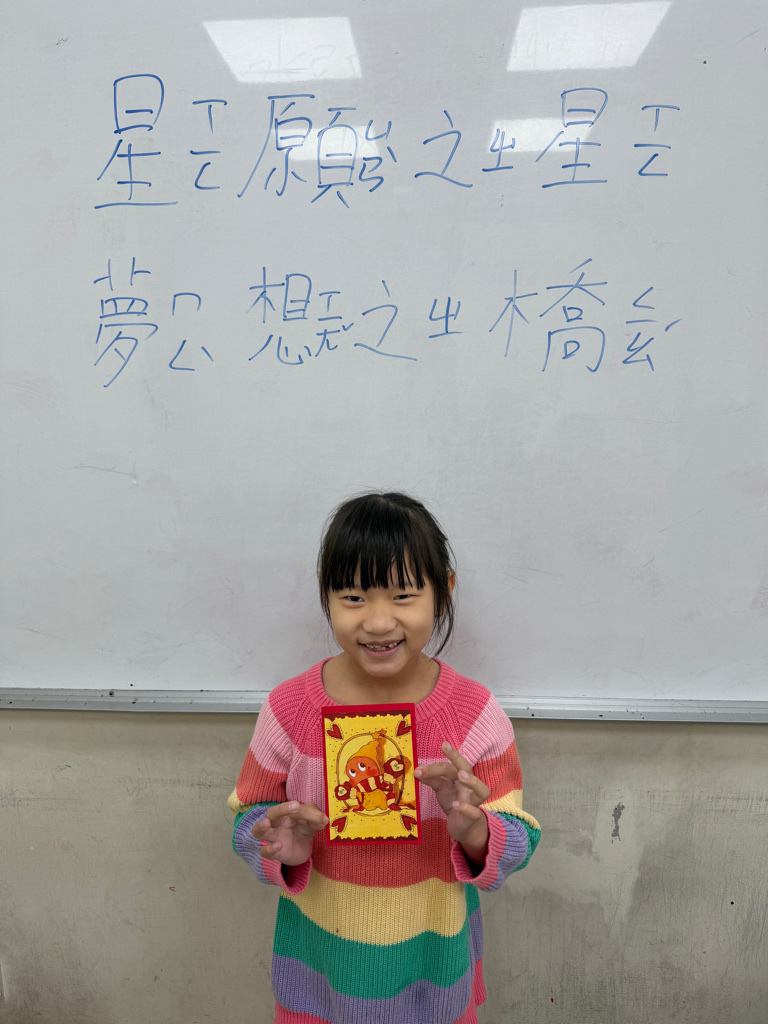 星ㄒㄧㄥ願ㄩㄢˋ之ㄓ星ㄒㄧㄥ
夢ㄇㄥˋ想ㄒㄧㄤˇ之ㄓ橋ㄑㄧㄠˊ